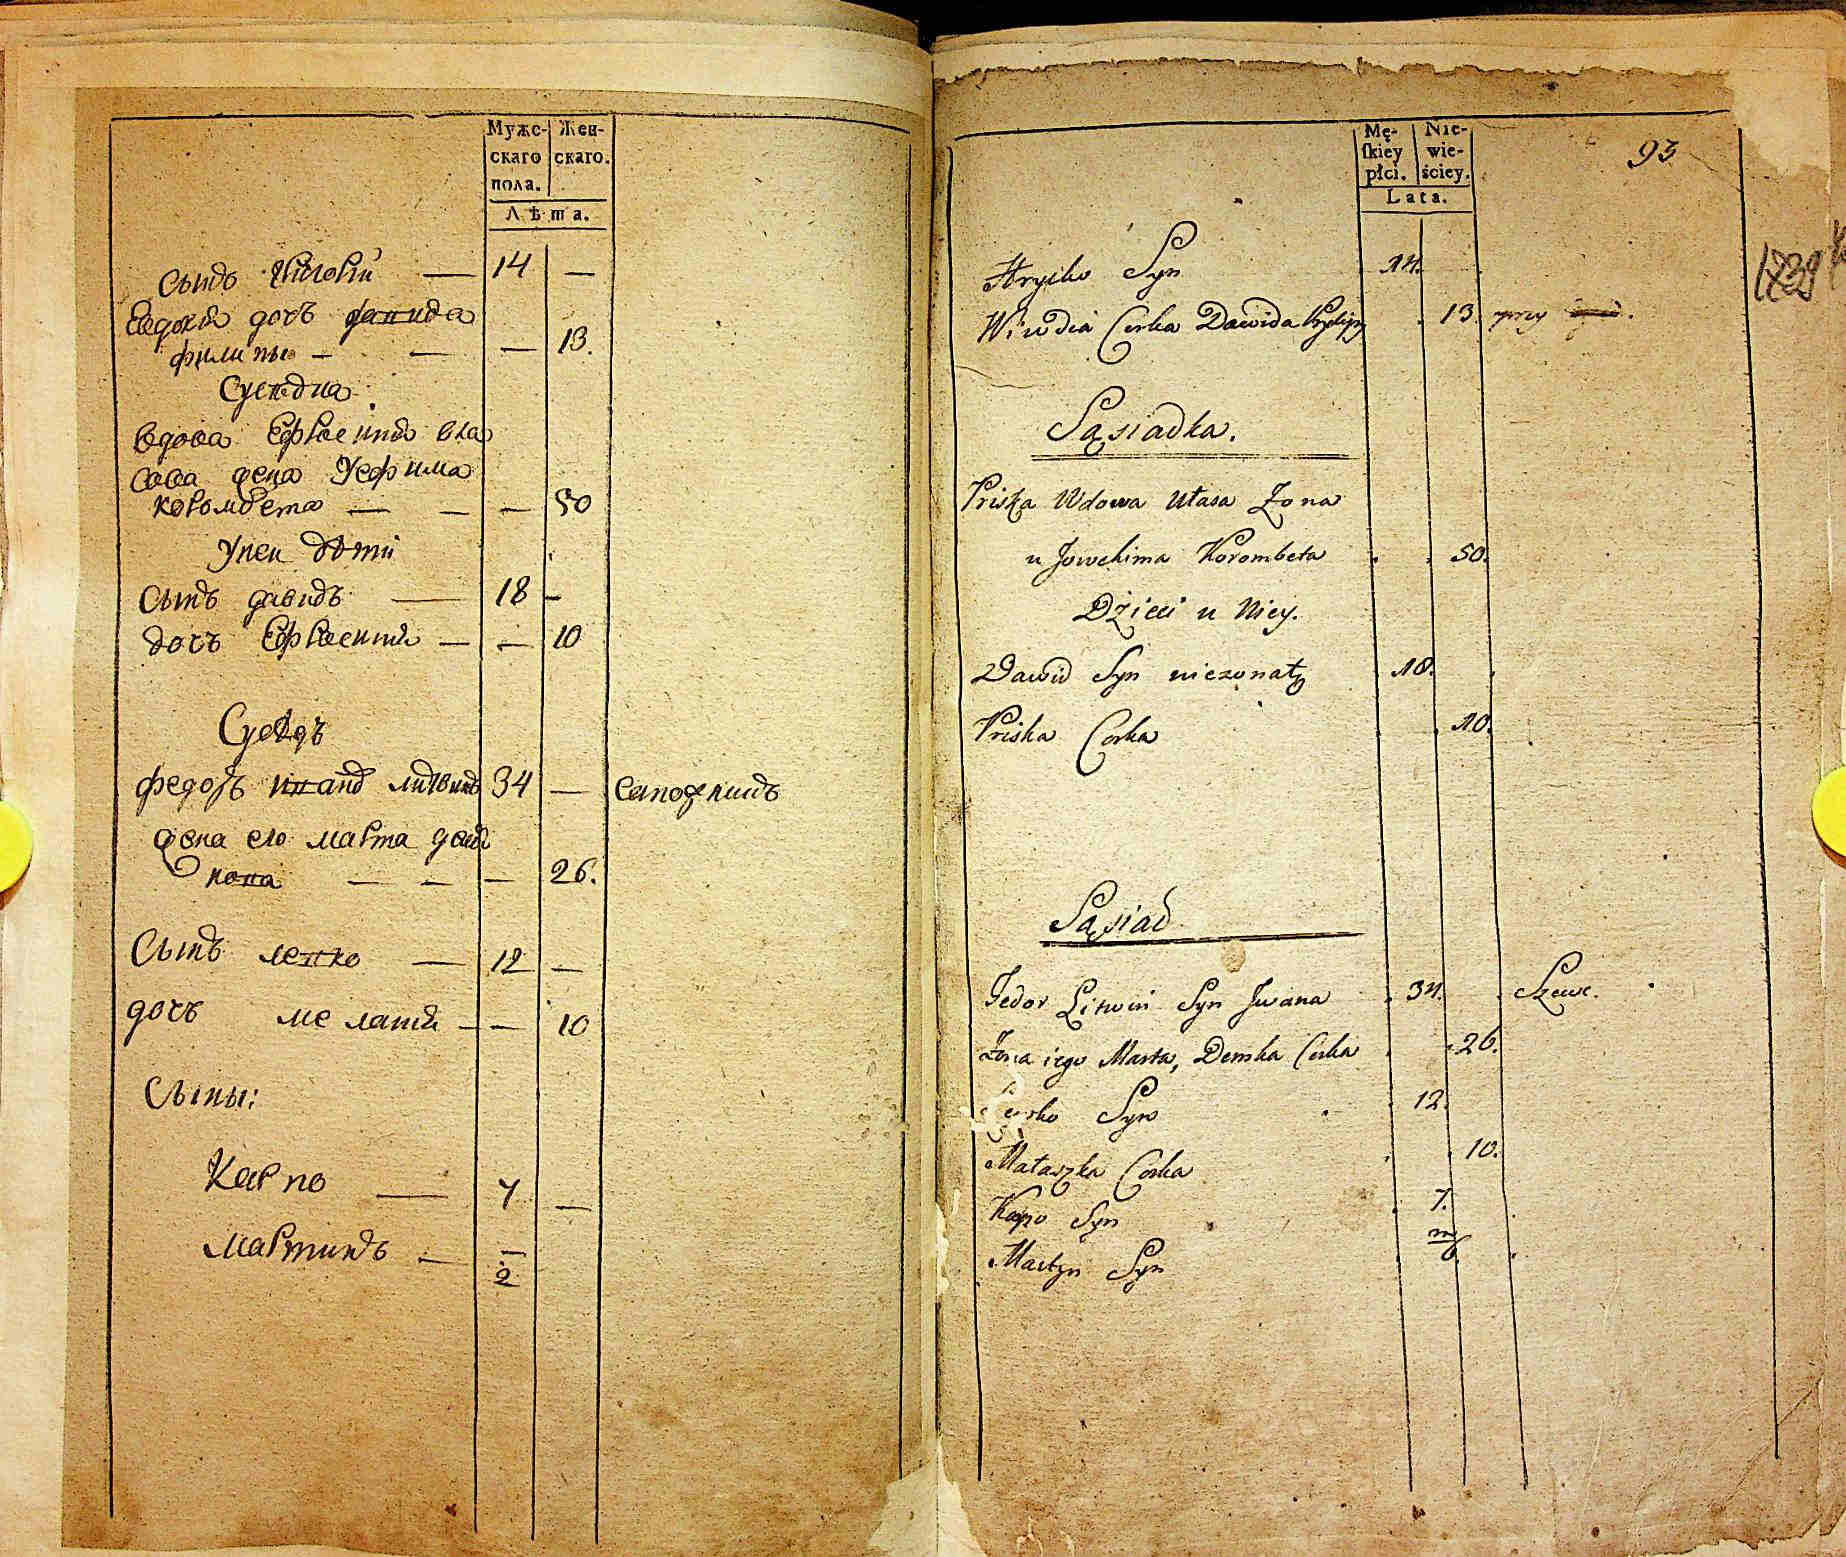 Мужс-
скаго
пола.
Жен-
скаго.
Лѣта.
сынъ Григорій — 14 —
Евдокія дочь давида
филипы — — — 13.
Суседка
вдова Ефросинія вла
сова жена Уефима
коромбета — — — 50
Унеи дѣти
Сынъ давидъ — 18 —
дочь Ефросинія — — 10
Суседъ
федоръ иванъ литвинъ 34 — сапожникъ
жена его марта деми
кова — — — 26.
Сынъ левко — 12 —
дочь меланія — — 10
Сыны:
Карпо — 7 —
мартинъ — 2
Mę-
skiey
płci.
Nie-
wie-
ściey.
Lata.
93
1839
Hryćko Syn 14.
Wiwdia Corka Dawida 13. przy
Sąsiadka.
Priska Wdowa Własa Zona
u Jowchima Korombeta 50.
Dzieci u Niey.
Dawid Syn niezonaty 18.
Priska Corka 10.
Sąsiad
Fedor Litwin Syn Jwana 34. Szewc.
Zona iego Marta, Demka Corka 26.
Syn 12.
Małaszka Corka 10.
Karpo Syn 7.
m
Martyn Syn 6.